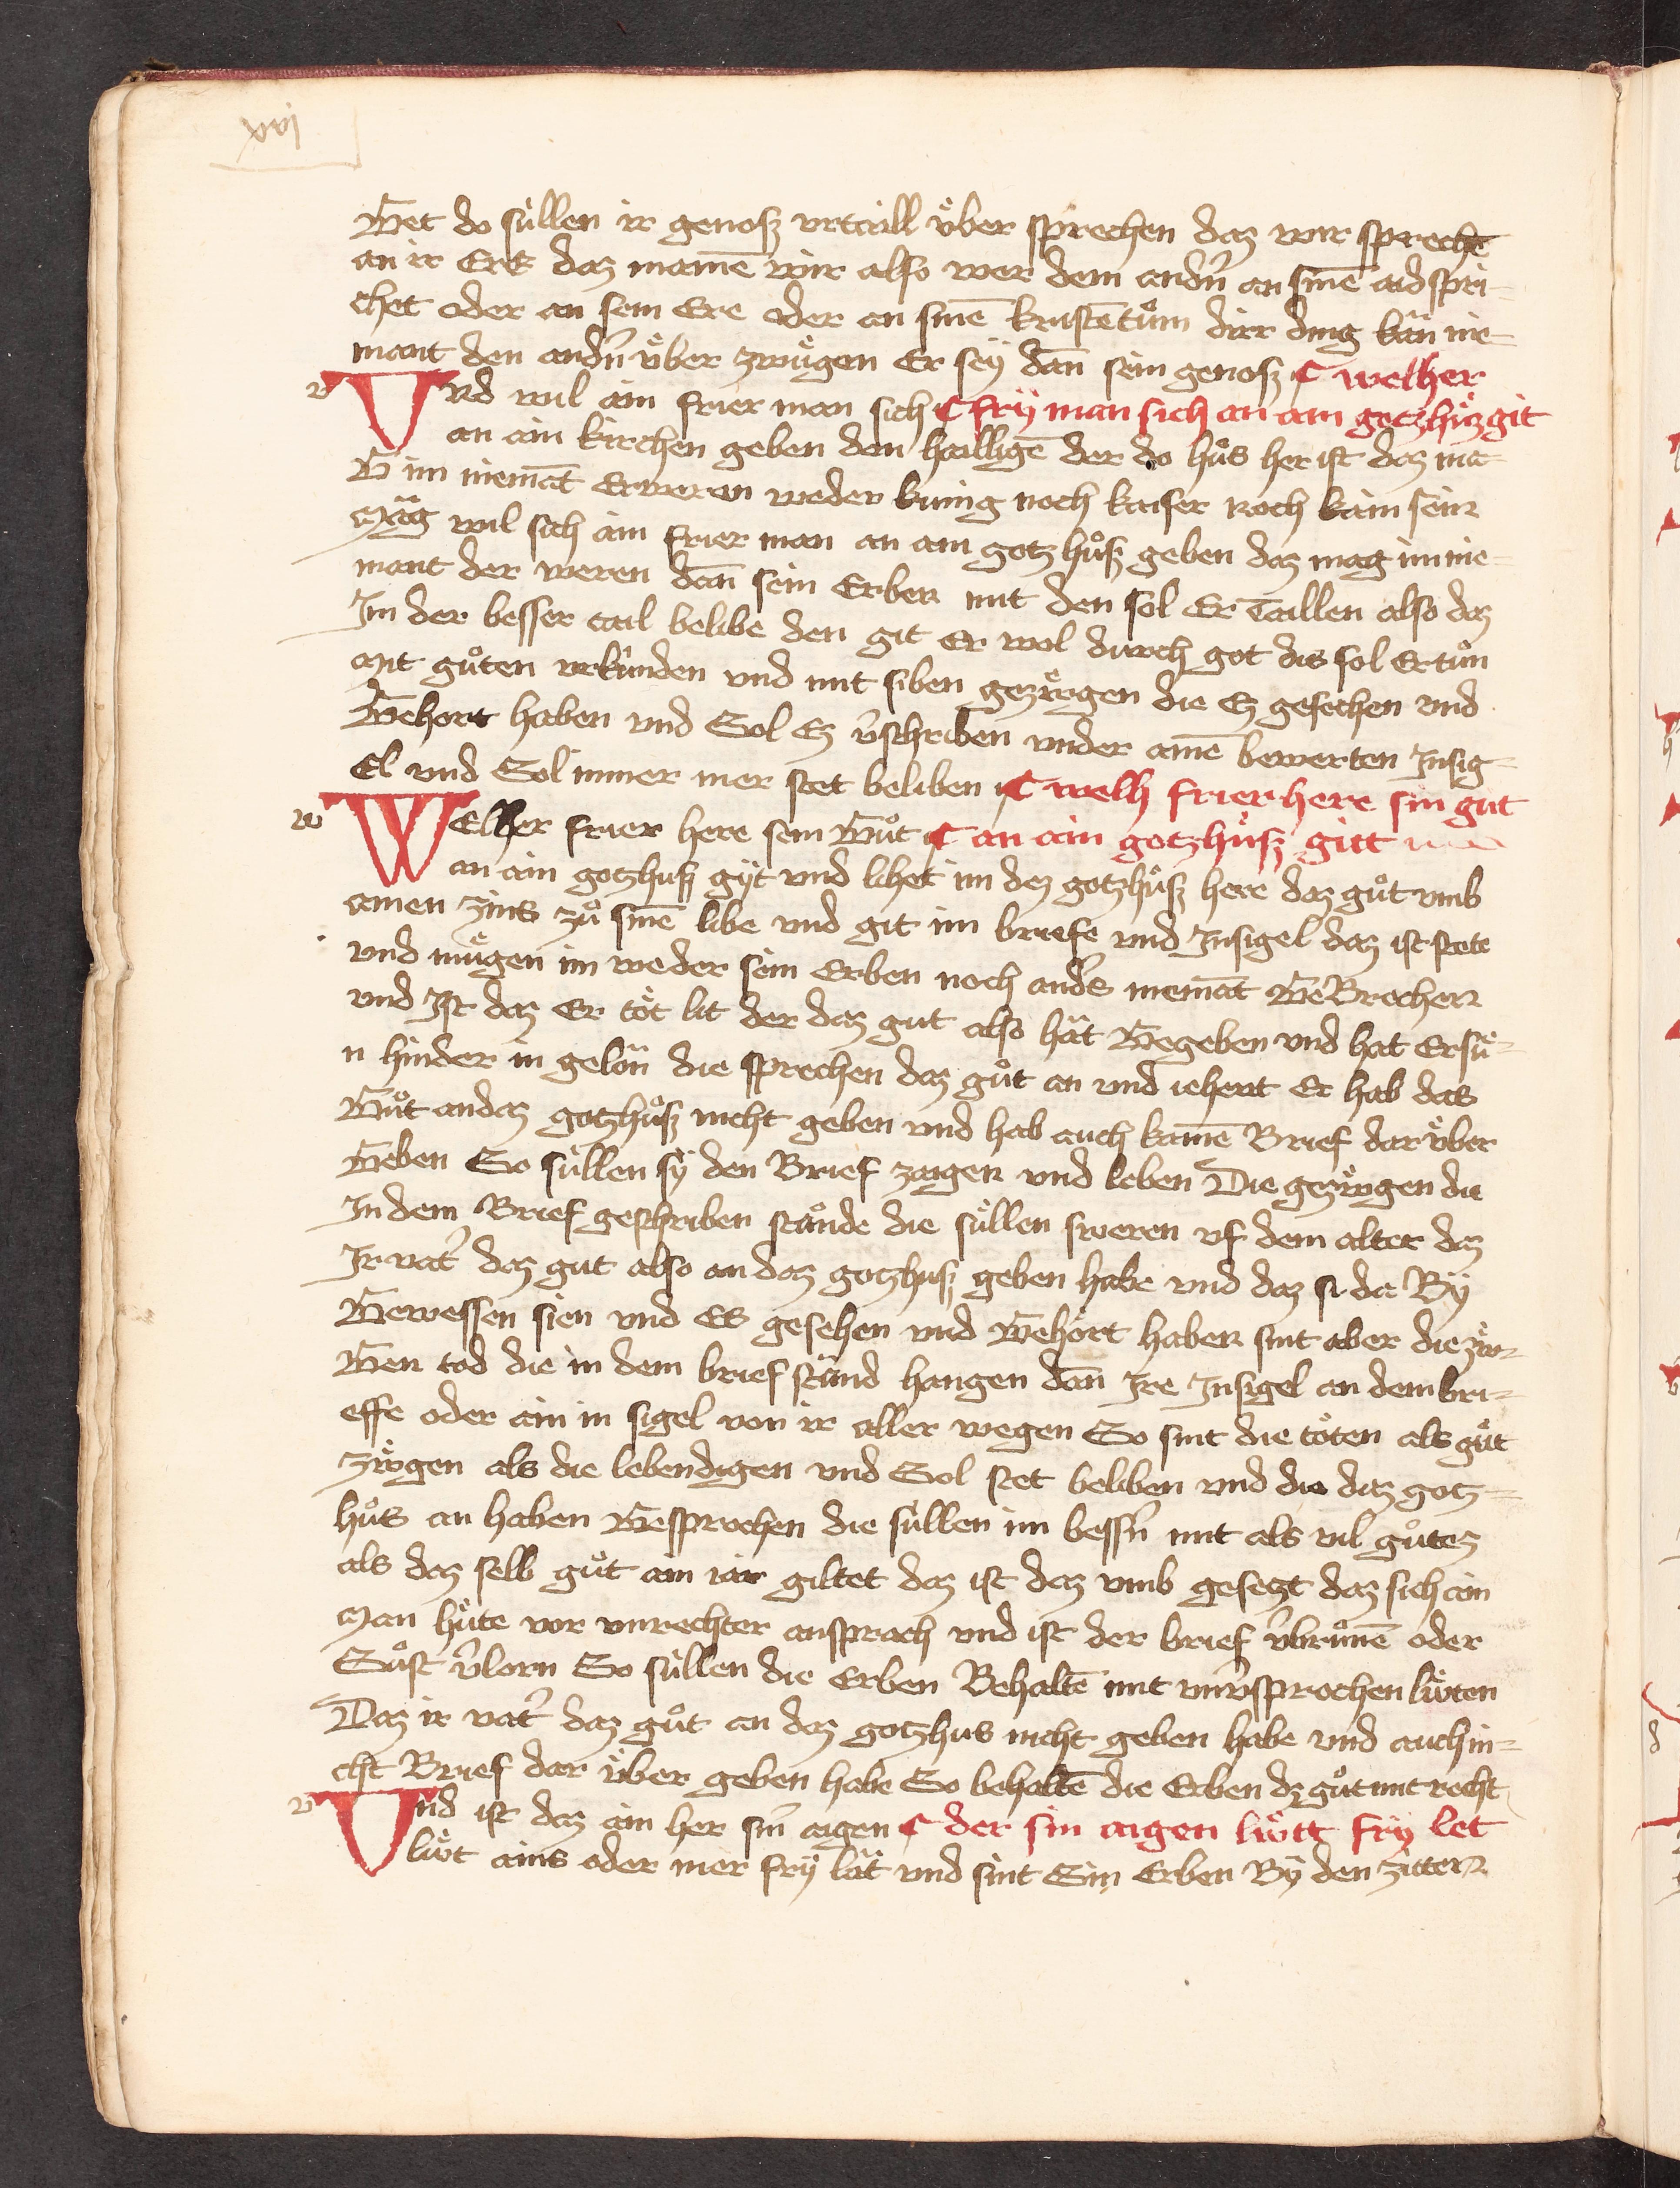 xvj
Get do süllen ir genosz vrtaill über sprechen daz wir spreche
an ir Ere daz mainē wir also wer dem andn̄ an sinē aid spri-
chet oder an sein Ere oder an sinē kristētům dirr ding kän nie-
mant den andn̄ über zwügen Er sey dān sein genosz ¶ welher
v Vnd wil ain frier man sich ¶ frÿ man sich an ain gotzhůz git
an ain kirchen geben den hailligē der do hůs her ist daz ma-
G im niemāt Erweren weder küing noch kaiser noch kain sein
Mäg wil sich ain frier man an ain gotz hůsz geben daz mag im nie-
mant der weren dān sein Erben mit den sol Er Taillen also daz
Im der besser tail belibe den git Er wol durch got dis sol Er tůn
Mit gůten vrkünden vnd mit siben gezwgen die Ez gesechen vnd
Gehort haben vnd Sol Ez v̄schriben vnder ainē bewerten Insig-
El vnd Sol immer mer stet beliben ¶ welh frier here sin gut
w WElher frier here sein Gůt ¶ an ain gotzhůsz gitt
an ain gotzhusz gÿt vnd lihet im dez gotzhůsz here daz gůt vmb
ainen zins zů sinē libe vnd git im briefe vnd Insigel daz ist stete
vnd mügen im weder sein Erben noch and's niemāt GeBrechen
vnd Ist daz Er töt lit der daz gut also hät Gegeben vnd hat Er sü-
n hinder in gelön die sprechen daz gůt an vnd iehent Er hab das
Gůt an daz gotzhůsz nicht geben vnd hab auch kainē Brief dar über
Geben So süllen sÿ den Brief zaigen vnd leben Die gezwgen die
In dem Brief geschriben stände die süllen sweren vf dem alter daz
Ir vat' daz gut also an daz gotzhusz geben habe vnd daz si da Bÿ
Gewessen sien vnd Es gesehen vnd Gehört haben sint aber die zw-
Gen tod die in dem brief stünd hangen dān Ire Insigel an dem bri-
effe oder ain in sigel von ir aller wegen So sint die töten als gůt
Zwgen als die lebendigen vnd Sol stet beliben vnd die daz gotz-
hůs an haben Gesprochen die süllen im bessn̄ mit als vil gůtez
als daz selb gůt ain iar giltet daz ist daz vmb gesetzt daz sich ain
Man hüte vor vnrechter ansprach vnd ist der brief v̄brůnē oder
Sůst v̄lorn So süllen die Erben Behaltē mit vnv̄sprochen lwten
Daz ir vat' daz gůt an daz gotzhus nicht geben habe vnd auch in-
cht Brief dar über geben habe So behaltē die Erben dz gůt mit recht
v Vnd ist daz ain her sin' aigen ¶ der sin aigen lwtt frÿ let
lwt ains oder mer frÿ lät vnd sint Sin Erben Bÿ den zitten